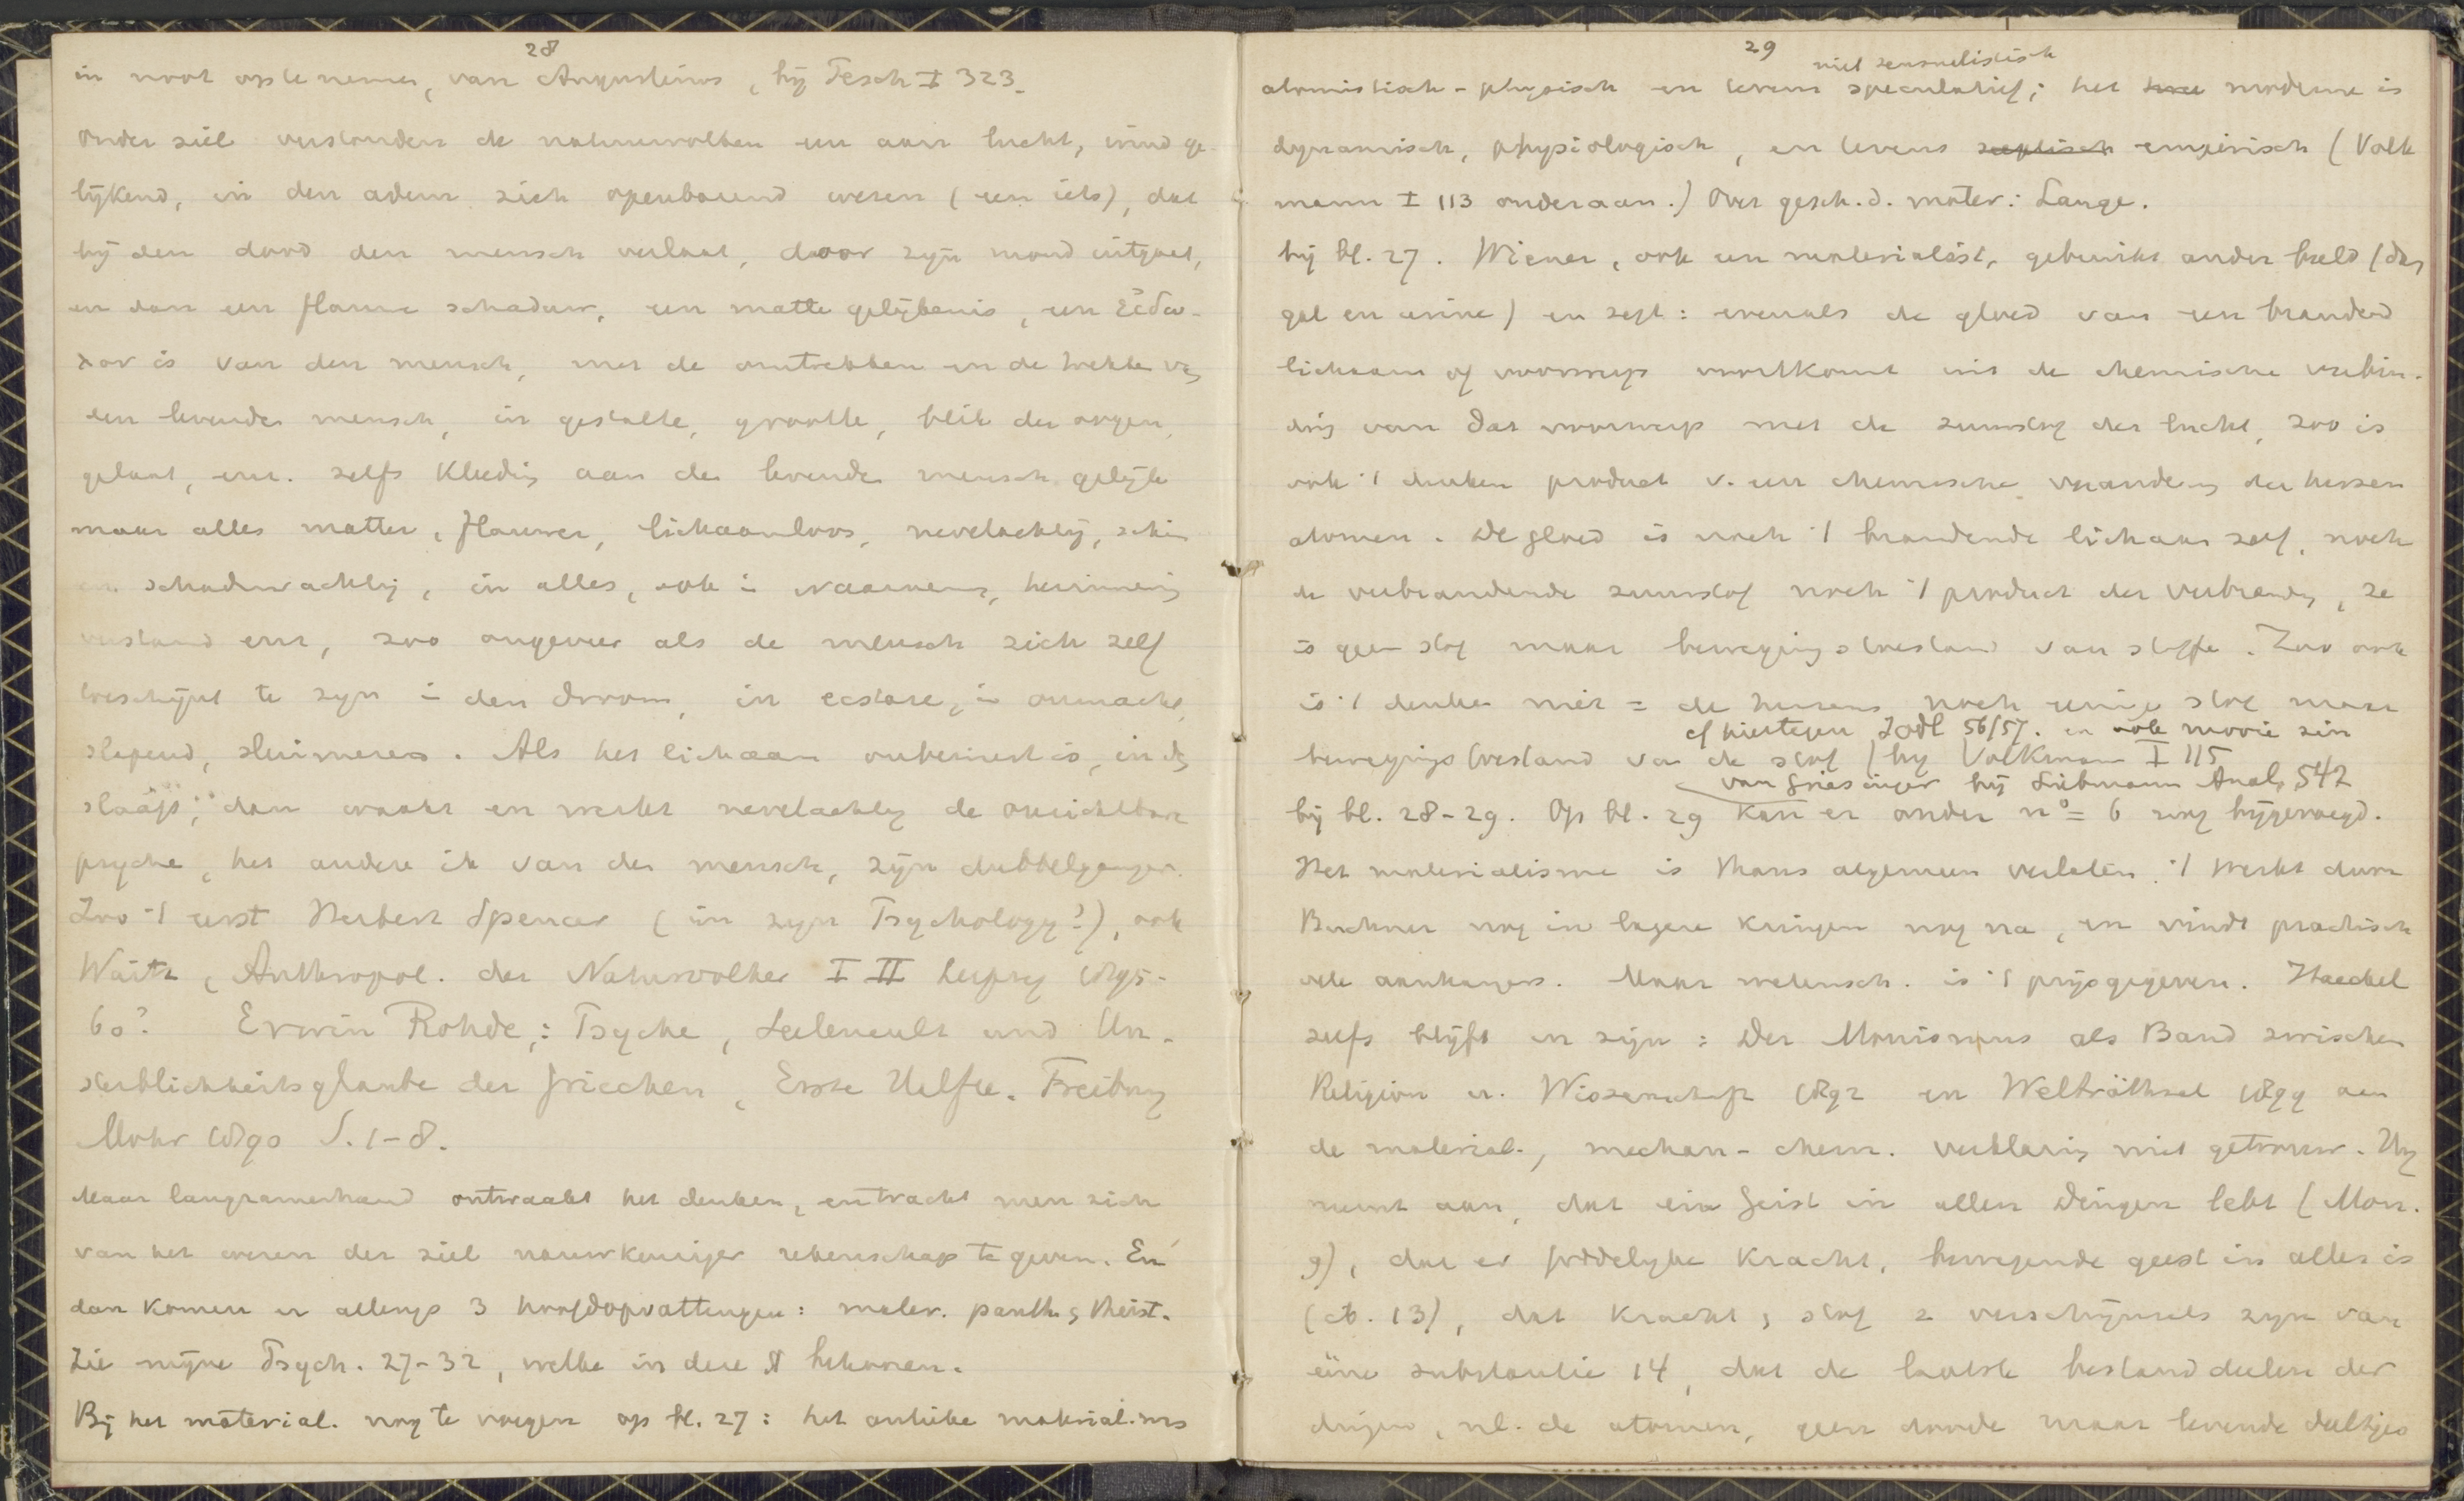 28
in noot op te nemen, van Augustinus, bij Pesch I 323.
Onder ziel verstonden de natuurvolken een aan lucht, wind ge-
lijkend, in den adem zich openbarend wezen (een iets), dat
bij den dood den mensch verlaat, door zijn mond uitgaat,
en dan een flauwe schaduw, een matte gelijkenis, een εἰδω-
λον is van den mensch, met de omtrekken en de trekken v.
een levende mensch, in gestalte, grootte, blik der oogen,
gelaat, enz. zelfs kleeding aan den levende mensch gelijk
maar alles matter, flauwer, lichaamloos, nevelachtig, schim
en schaduwachtig, in alles, ook in waarneming, herinnering
verstand enz, zoo ongeveer als de mensch zich zelf
toeschijnt te zijn in den droom, in ecstase, in onmacht,
slapend, sluimerend. Als het lichaam onbewust is, in den
slaap, dan waakt en werkt nevelachtig de onzichtbare
psyche, het andere ik van den mensch, zijn dubbelganger.
Zoo 't eerst Herbert Spencer (in zijn Psychology?), ook
Waitz, Anthropol. der Naturvolker I II Leipzig 1859-
60? Erwin Rohde,: Psyche, Seelencult und Un-
sterblichkeitsglaube der Griechen, Erste Helfte. Freiburg
Mohr 1890 S. 1-8.
Maar langzamerhand ontwaakt het denken, en tracht men zich
van het wezen der ziel nauwkeuriger rekenschap te geven. En
dan komen er allengs 3 hoofdopvattingen: mater. panth. theist.
Zie mijne Psych. 27-32, welke in deze § bekomen.
Bij het material. nog te voegen op bl. 27: het antieke material. was
29
niet sensualistisch
atomistisch-physisch en tevens speculatief; het moderne is
dynamisch, physiologisch, en tevens sceptisch empirisch (Volk
mann I 113 onderaan.) Over gesch. d. mater: Lange.
bij bl. 27. Wiener, ook een materialist, gebruikt ander beeld (dan
gal en urine) en zegt: evenals de gloed van een brandend
lichaam of voorwerp voortkomt uit de chemische verbin-
ding van dat voorwerp met de zuurstof der lucht, zoo is
ook 't denken product v. een chemische verandering der hersen
atomen. De gloed is noch 't brandende lichaam zelf, noch
de verbrandende zuurstof noch 't product der verbranding, ze
is geen stof maar bewegingstoestand van stoffe. Zoo ook
is 't denken niet = de hersens noch eenige stof maar
cf hiertegen Jodl 56/57. en ook mooie zin
bewegingstoestand van de stof (bij Volkmann I 115
van Griesinger bij Liebmann Anal. 542
bij bl. 28-29. Op bl. 29 kan er onder n° = 6 nog bijgevoegd.
Het materialisme is thans algemeen verlaten. 't werkt door
Buchner nog in lagere kringen nog na, en vindt practisch
vele aanhangers. Maar wetensch. is 't prijsgegeven. Haeckel
zelfs blijft in zijn: Der Monismus als Band zwischen
Religion u. Wissenschaft 1892 en Welträthsel 1899 aan
de material., mechan-chem. verklaring niet getrouw. Hij
neemt aan, dat ein Geist in allen Dingen lebt (Mon.
9), dat er goddelijke kracht, bewegende geest in alles is
(ib. 13), dat kracht, stof 2 verschijnsels zijn van
eene substantie 14, dat de laatste bestanddeelen der
dingen, nl. de atomen, geen doode maar levende deeltjes